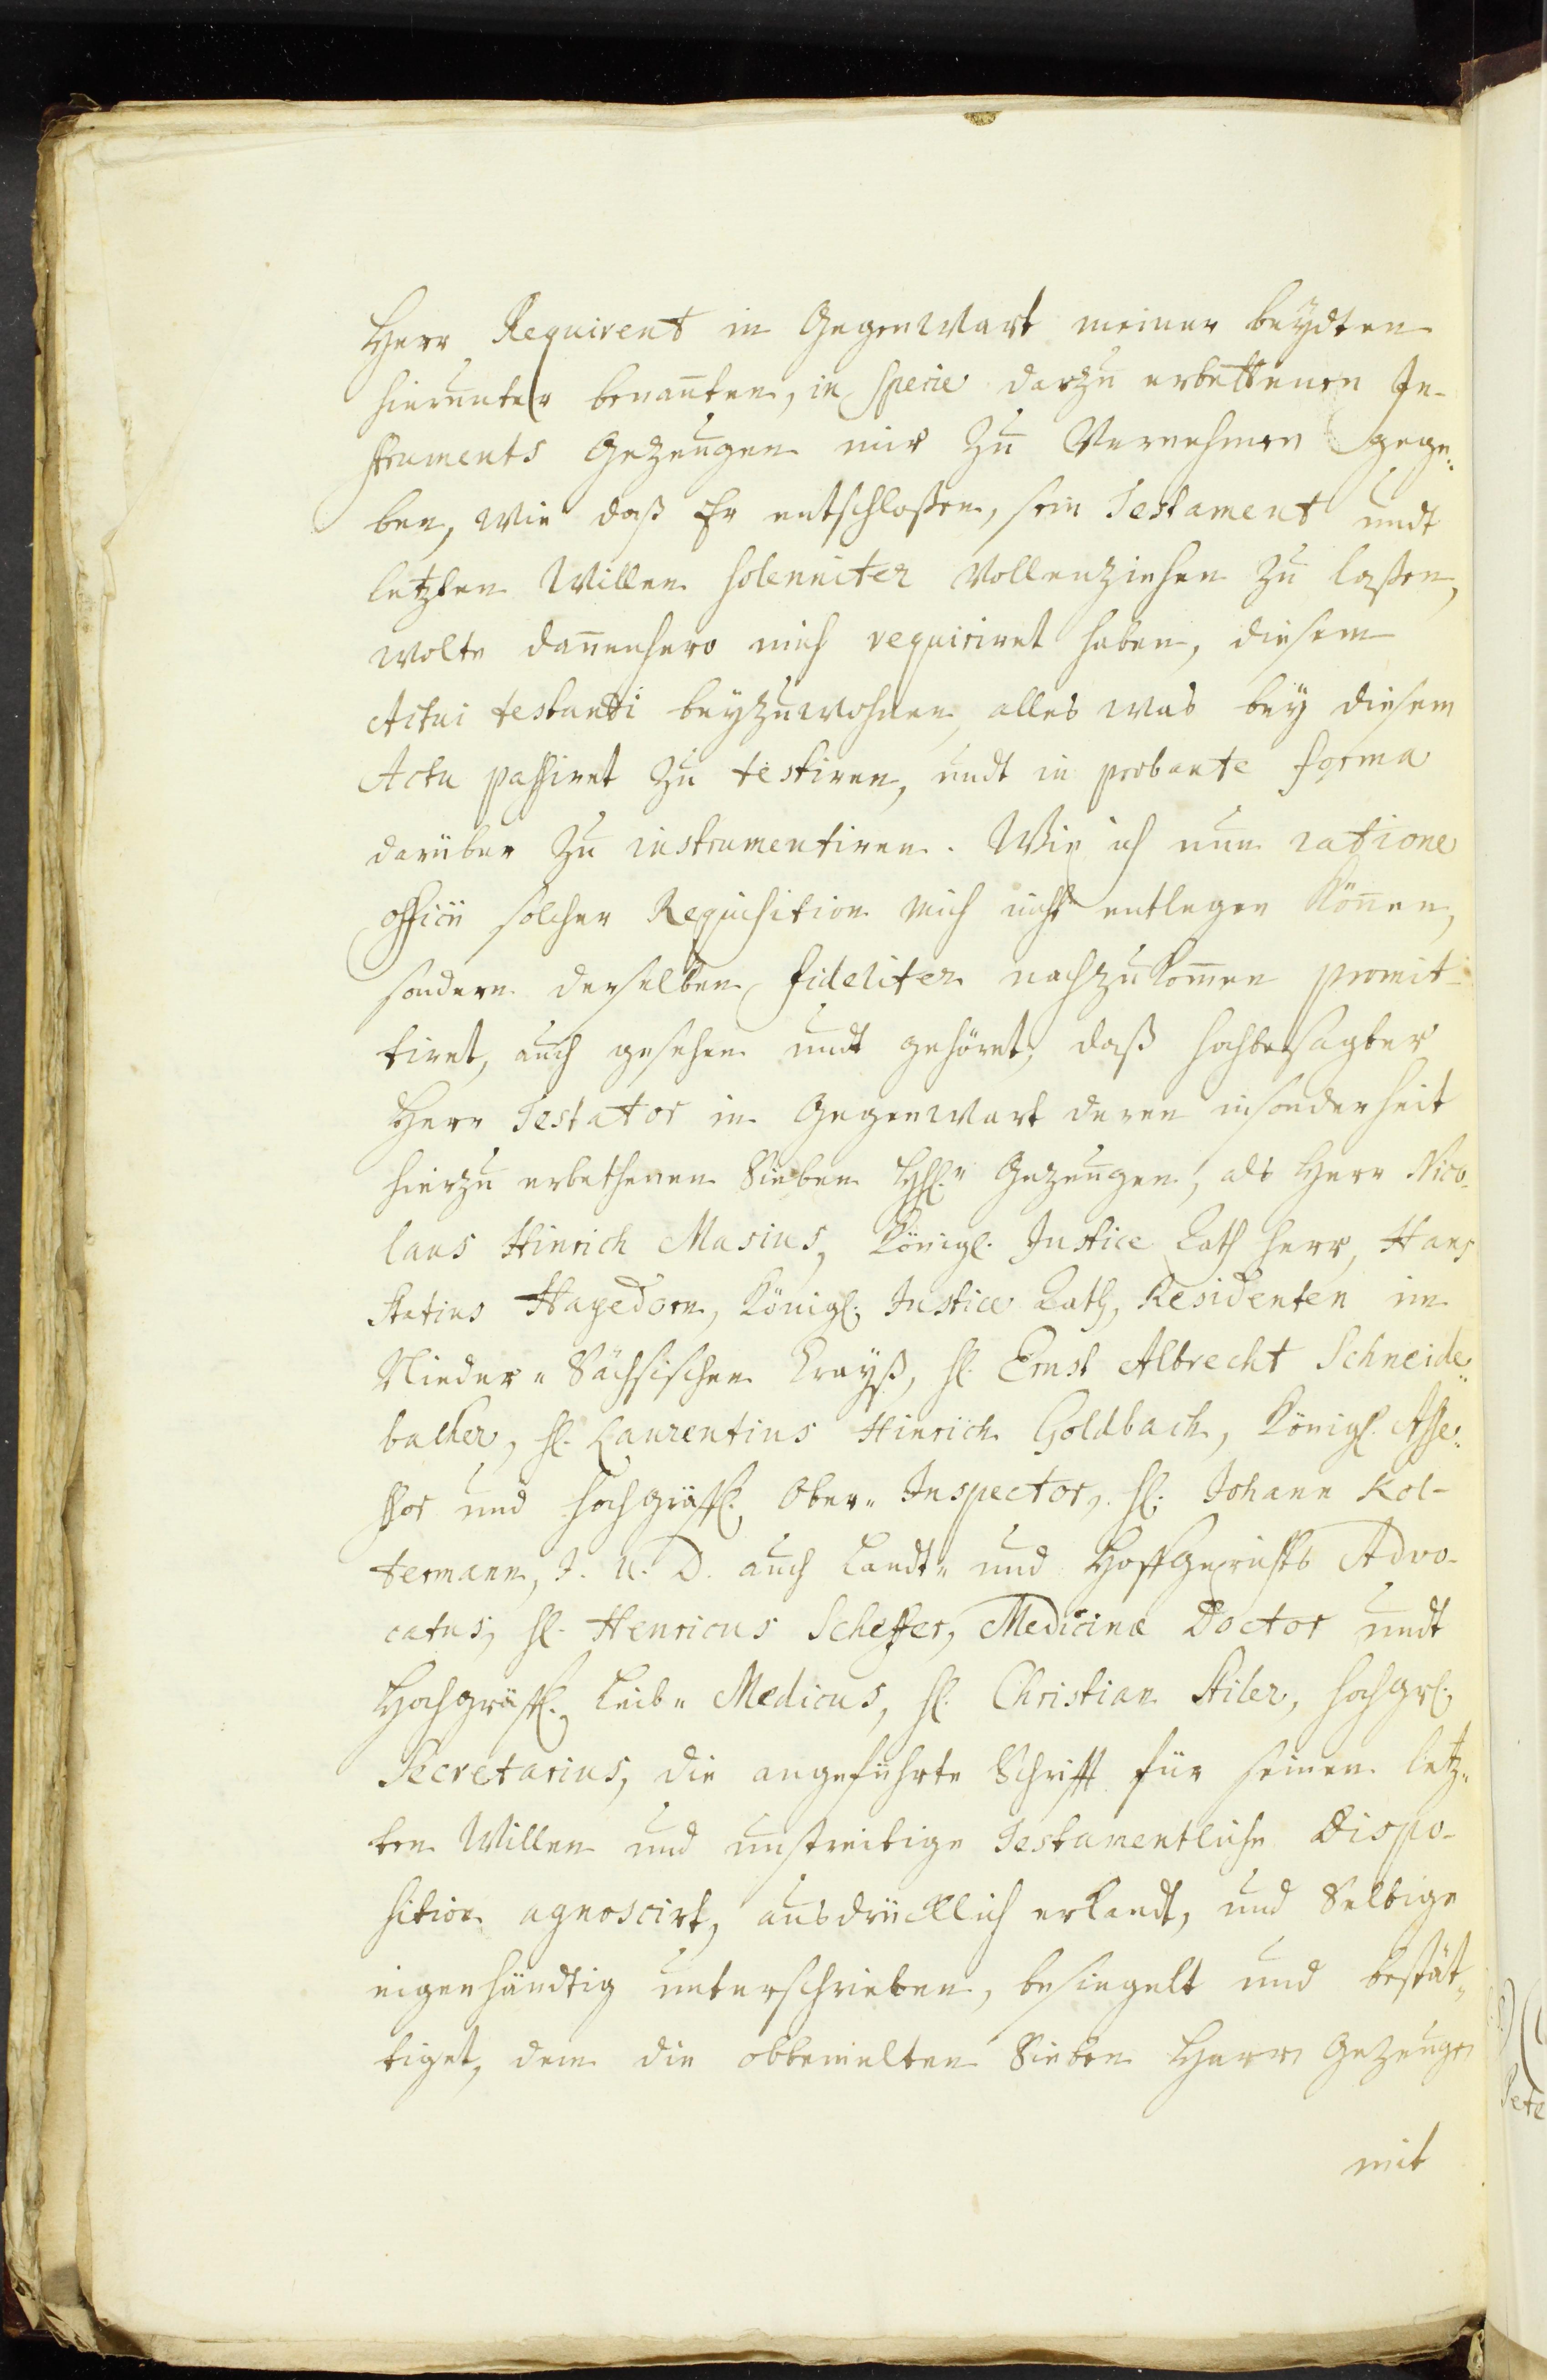 Herr Requirent in Gegenwart meiner beydten
hierunter benan̅ten, in specie darzu erbettenen In-
struments Gezeugen mir zu Vernehmen gege-
ben, wie daß Er entschloßen, sein Testament undt
letzten Willen solenniter Vollenziehen zu laßen,
wolte dan̅enhero mich requiriret haben, diesem
Actui testandi beyzuwohnen, alles was bey diesem
Actu passiret zu testiren, undt in probante forma
darüber zu instrumentiren. Wie ich nun ratione
officii solcher Requisition mich nicht entlegen kön̅en,
sondern derselben fideliter nachzukom̅en promit-
tiret, auch gesehen undt gehöret, daß hochbesagter
Herr Testator in Gegenwart deren insonderheit
hierzu erbethenen Sieben HHl.n Gezeugen, als Herr Nico-
laus Hinrich Masius, Königl. Justice Rath Herr, Hans
Statius Hagedorn, Königl. Justice Rath, Residenten im
Nieder-Sächsischen Crayß, Hl. Ernst Albrecht Schneide-
bacher, Hl. Laurentius Hinrich Goldbach, Königl. Asse-
ssor und Hochgräffl. Ober-Inspector, Hl. Johann Kol-
termann, J. U. D. auch Landt- und Hoffgerichts Advo-
catus, Hl. Henricus Scheffer, Medicinæ Doctor undt
Hochgräffl. Leib-Medicus, Hl. Christian Stiler, Hochgrl.
Secretarius, die angeführte Schrifft für seinen letz-
ten Willen und unstreitige Testamentliche Dispo-
sition agnoscirt, ausdrücklich erkandt, und Selbige
eigenhändtig unterschrieben, besiegelt und bestät-
tiget, dem die obbemelten Sieben Herrn Gezeugen
mit